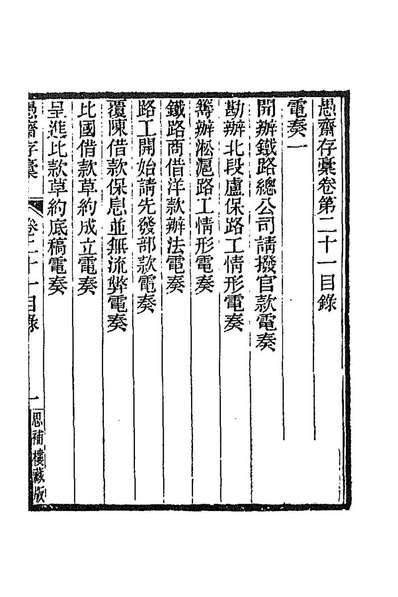 愚齋存稾卷第二十一目錄
電奏一
開辦鐵路總公司請撥官款電奏
勘辦北段盧保路工情形電奏
籌辦淞滬路工情形電奏
鐵路商借洋款辦法電奏
路工開始請先發部款電奏
覆陳借款保息並無流弊電奏
比國借款草約成立電奏
呈進比款草約底稿電奏
愚齋存稾
卷二十一目錄
一
思補樓藏版